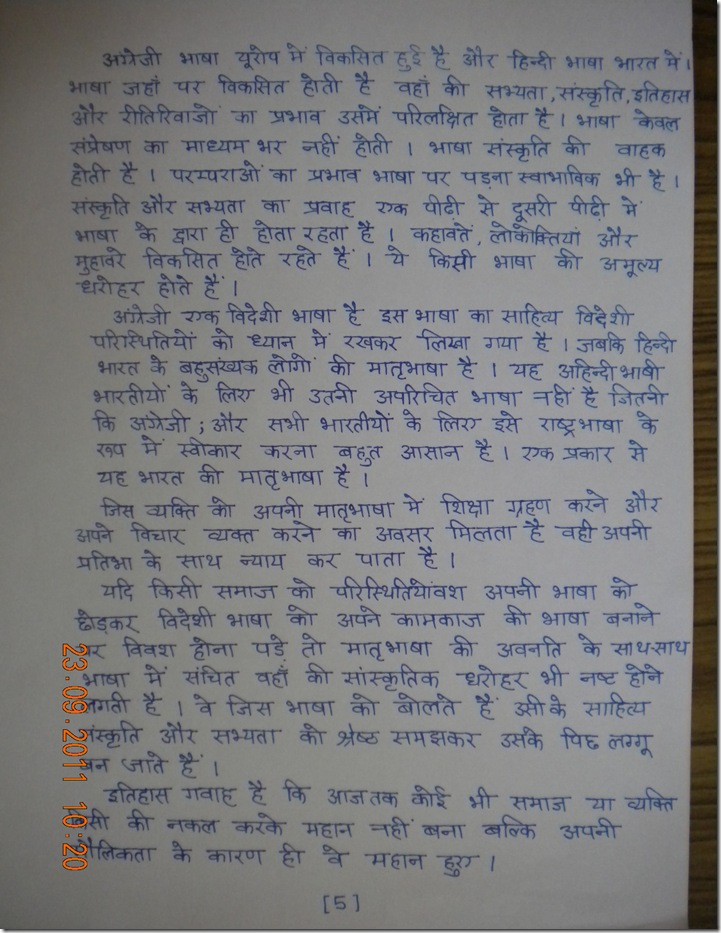 अंग्रेजी भाषा यूरोप में विकसित हुई है और हिन्दी भाषा भारत में।
भाषा जहाँ पर विकसित होती है वहाँ की सभ्यता, संस्कृति, इतिहास
और रीतिरिवाजों का प्रभाव उसमें परिलक्षित होता है। भाषा केवल
संप्रेषण का माध्यम भर नहीं होती। भाषा संस्कृति की वाहक
होती है। परम्पराओं का प्रभाव भाषा पर पड़ना स्वाभाविक भी है।
संस्कृति और सभ्यता का प्रवाह एक पीढ़ी से दूसरी पीढ़ी में
भाषा के द्वारा ही होता रहता है। कहावतें, लोकोक्तियां और
मुहावरे विकसित होते रहते हैं। ये किसी भाषा की अमूल्य
धरोहर होते हैं।
अंग्रेजी एक विदेशी भाषा है इस भाषा का साहित्य विदेशी
परिस्थितियों को ध्यान में रखकर लिखा गया है। जबकि हिन्दी
भारत के बहुसंख्यक लोगों की मातृभाषा है। यह अहिन्दी भाषी
भारतीयों के लिए भी उतनी अपरिचित भाषा नहीं है जितनी
कि अंग्रेजी; और सभी भारतीयों के लिए इसे राष्ट्रभाषा के
रूप में स्वीकार करना बहुत आसान है। एक प्रकार से
यह भारत की मातृभाषा है।
जिस व्यक्ति को अपनी मातृभाषा में शिक्षा ग्रहण करने और
अपने विचार व्यक्त करने का अवसर मिलता है वही अपनी
प्रतिभा के साथ न्याय कर पाता है।
यदि किसी समाज को परिस्थितियोंवश अपनी भाषा को
छोड़कर विदेशी भाषा को अपने कामकाज की भाषा बनाने
पर विवश होना पड़े तो मातृभाषा की अवनति के साथ-साथ
भाषा में संचित वहाँ की सांस्कृतिक धरोहर भी नष्ट होने
लगती है। वे जिस भाषा को बोलते हैं उसी के साहित्य
संस्कृति और सभ्यता को श्रेष्ठ समझकर उसके पिछ लग्गू
बन जाते हैं।
इतिहास गवाह है कि आजतक कोई भी समाज या व्यक्ति
किसी की नकल करके महान नहीं बना बल्कि अपनी
मौलिकता के कारण ही वे महान हुए।
[5]
23.09.2011 10:20